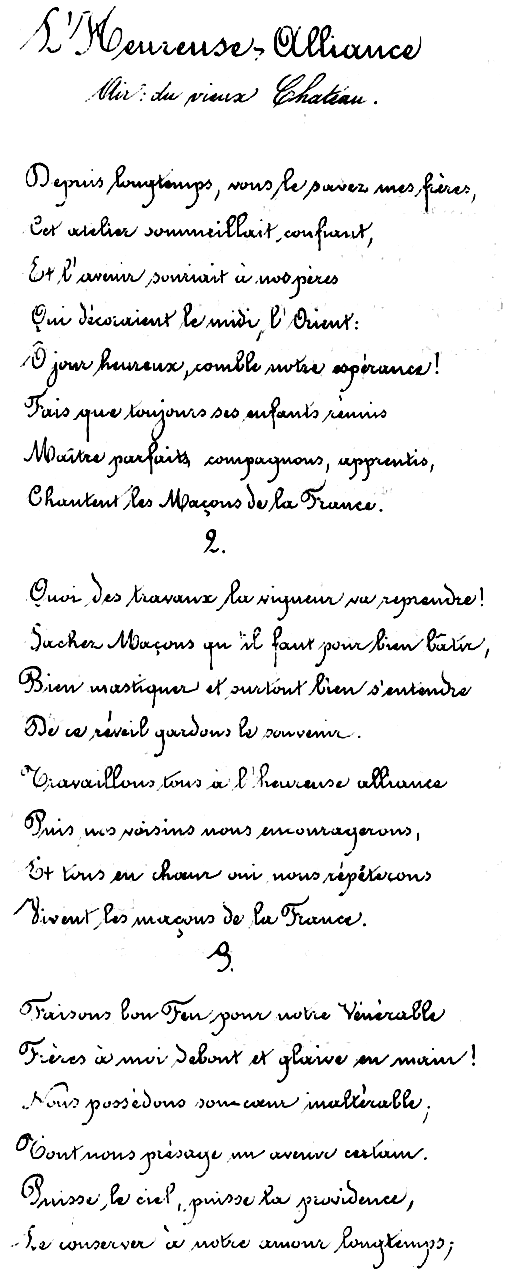 L'Heureuse Alliance
Air : du vieux Chateau.
Depuis longtemps, vous le savez mes frères,
Cet atelier sommeillait, confiant,
Et l'avenir souriait à nos pères
Qui décoraient le midi, l'Orient :
Ô jour heureux, comble notre espérance !
Fais que toujours ses enfants réunis
Maître parfaits, compagnons, apprentis,
Chantent les Maçons de la France.
2.
Quoi des travaux la vigueur va reprendre !
Sachez Maçons qu'il faut pour bien bâtir,
Bien mastiquer et surtout bien s'entendre
De ce réveil gardons le souvenir.
Travaillons tous à l'heureuse alliance
Puis nos voisins nous encouragerons,
Et tous en chœur oui nous répéterons
Vivent les maçons de la France.
3.
Faisons bon Feu pour notre Vénérable
Frères à moi debout et glaive en main !
Nous possédons son cœur inaltérable ;
Tout nous présage un avenir certain.
Puisse le ciel, puisse la providence,
Le conserver à notre amour longtemps ;